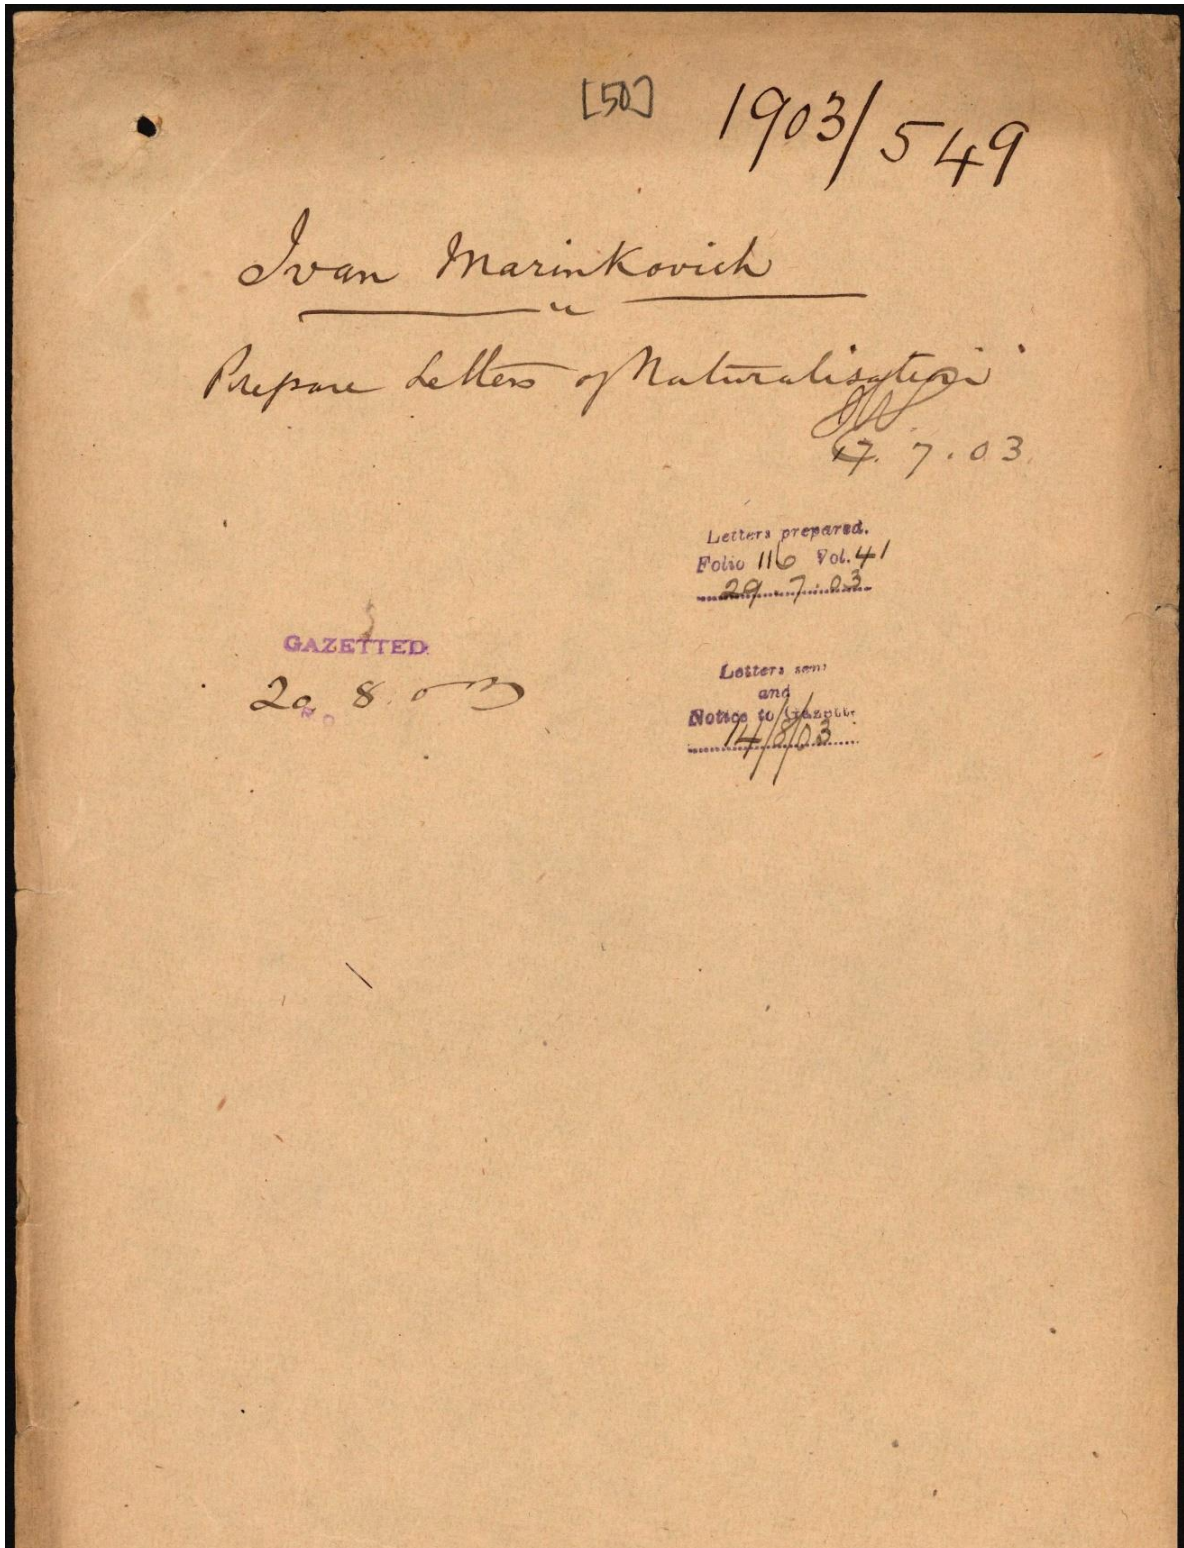 [50]
1903/549
Ivan Marinkovich
Prepare Letters of Naturalisation
17.7.03
Letters prepared.
Folio 116 Vol. 41
29.7.03
GAZETTED
20 8 03
Letters sent
and
Notice to Gazette
14/8/03